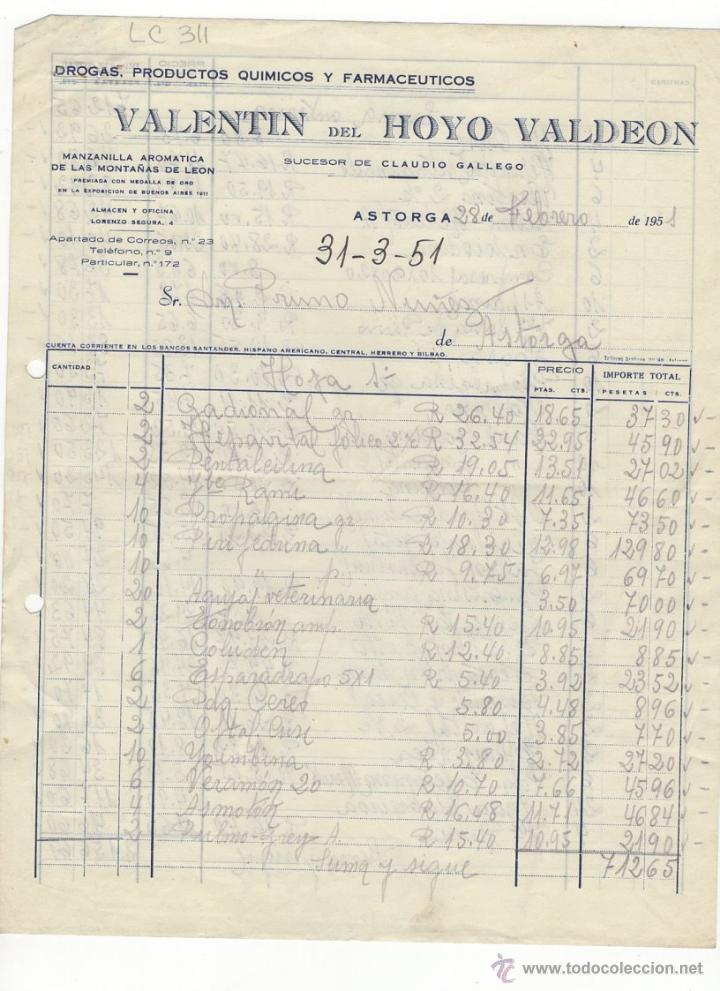 LC 311
DROGAS, PRODUCTOS QUIMICOS Y FARMACEUTICOS
VALENTIN DEL HOYO VALDEON
MANZANILLA AROMATICA
DE LAS MONTAÑAS DE LEON
PREMIADA CON MEDALLA DE ORO
EN LA EXPOSICION DE BUENOS AIRES 1911
SUCESOR DE CLAUDIO GALLEGO
ALMACEN Y OFICINA
LORENZO SEGURA, 4
ASTORGA 28 de Febrero de 1951
Apartado de Correos, n.º 23
Teléfono, n.º 9
Particular, n.º 172
31-3-51
Sr. Bruno Nuñez
de Astorga
CUENTA CORRIENTE EN LOS BANCOS SANTANDER, HISPANO AMERICANO, CENTRAL, HERRERO Y BILBAO.
CANTIDAD PRECIO IMPORTE TOTAL
PTAS. CTS. PESETAS CTS.
Hoja 1ª
2 Cadional gr R 26.40 18.65 37 30
2 Hepavital R 32.54 22.95 45 90
2 R 19.05 13.51 27 02
4 R 16.40 11.65 46 60
10 Propalgina gr R 10.30 7.35 73 50
10 R 18.30 12.98 129 80
10 " p. R 9.75 6.97 69 70
20 Agujas veterinaria 3.50 70 00
2 amp. R 15.40 10.95 21 90
1 R 12.40 8.85 8 85
6 Esparadrapo 5x1 R 5.40 3.92 23 52
2 Paq. Ceres 5.80 4.48 8 96
2 Oftal Cusi 5.00 3.85 7 70
10 Yoimbina R 3.80 2.72 27 20
6 Veramón 20 R 10.70 7.66 45 96
4 R 16.48 11.71 46 84
2 A. R 15.40 10.95 21 90
Suma y sigue 712 65
www.todocoleccion.net